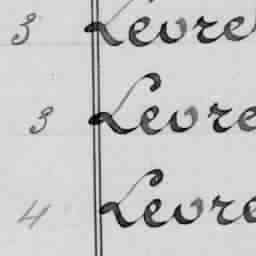 3 Levre
3 Levre
4 Levre